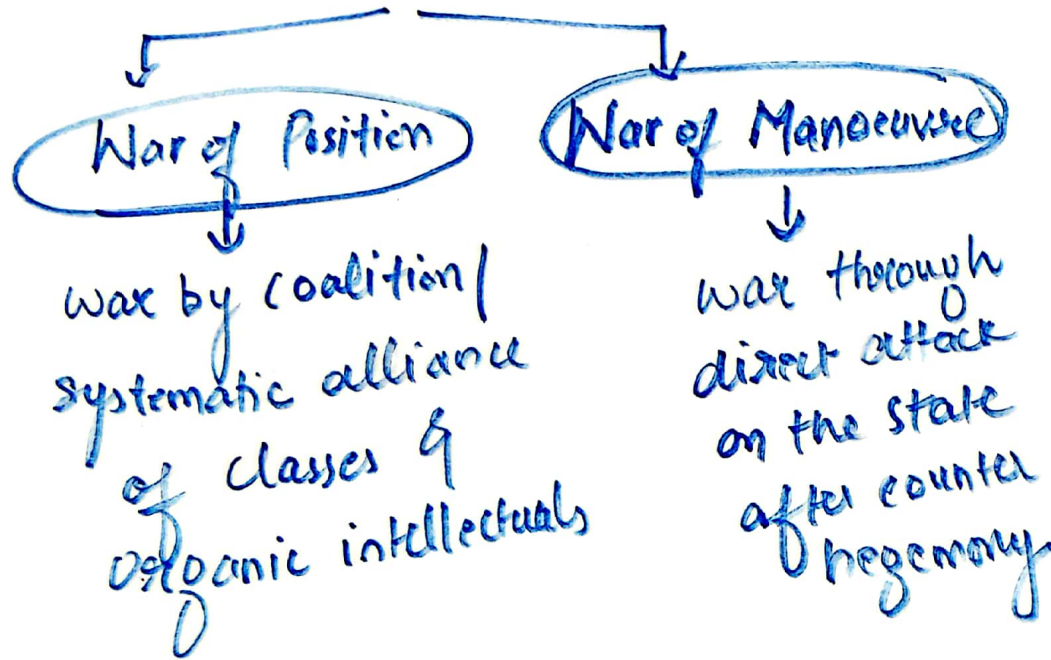 War of Position
War of Manoeuvre
war by coalition/
systematic alliance
of classes &
organic intellectuals
war through
direct attack
on the state
after counter
hegemony